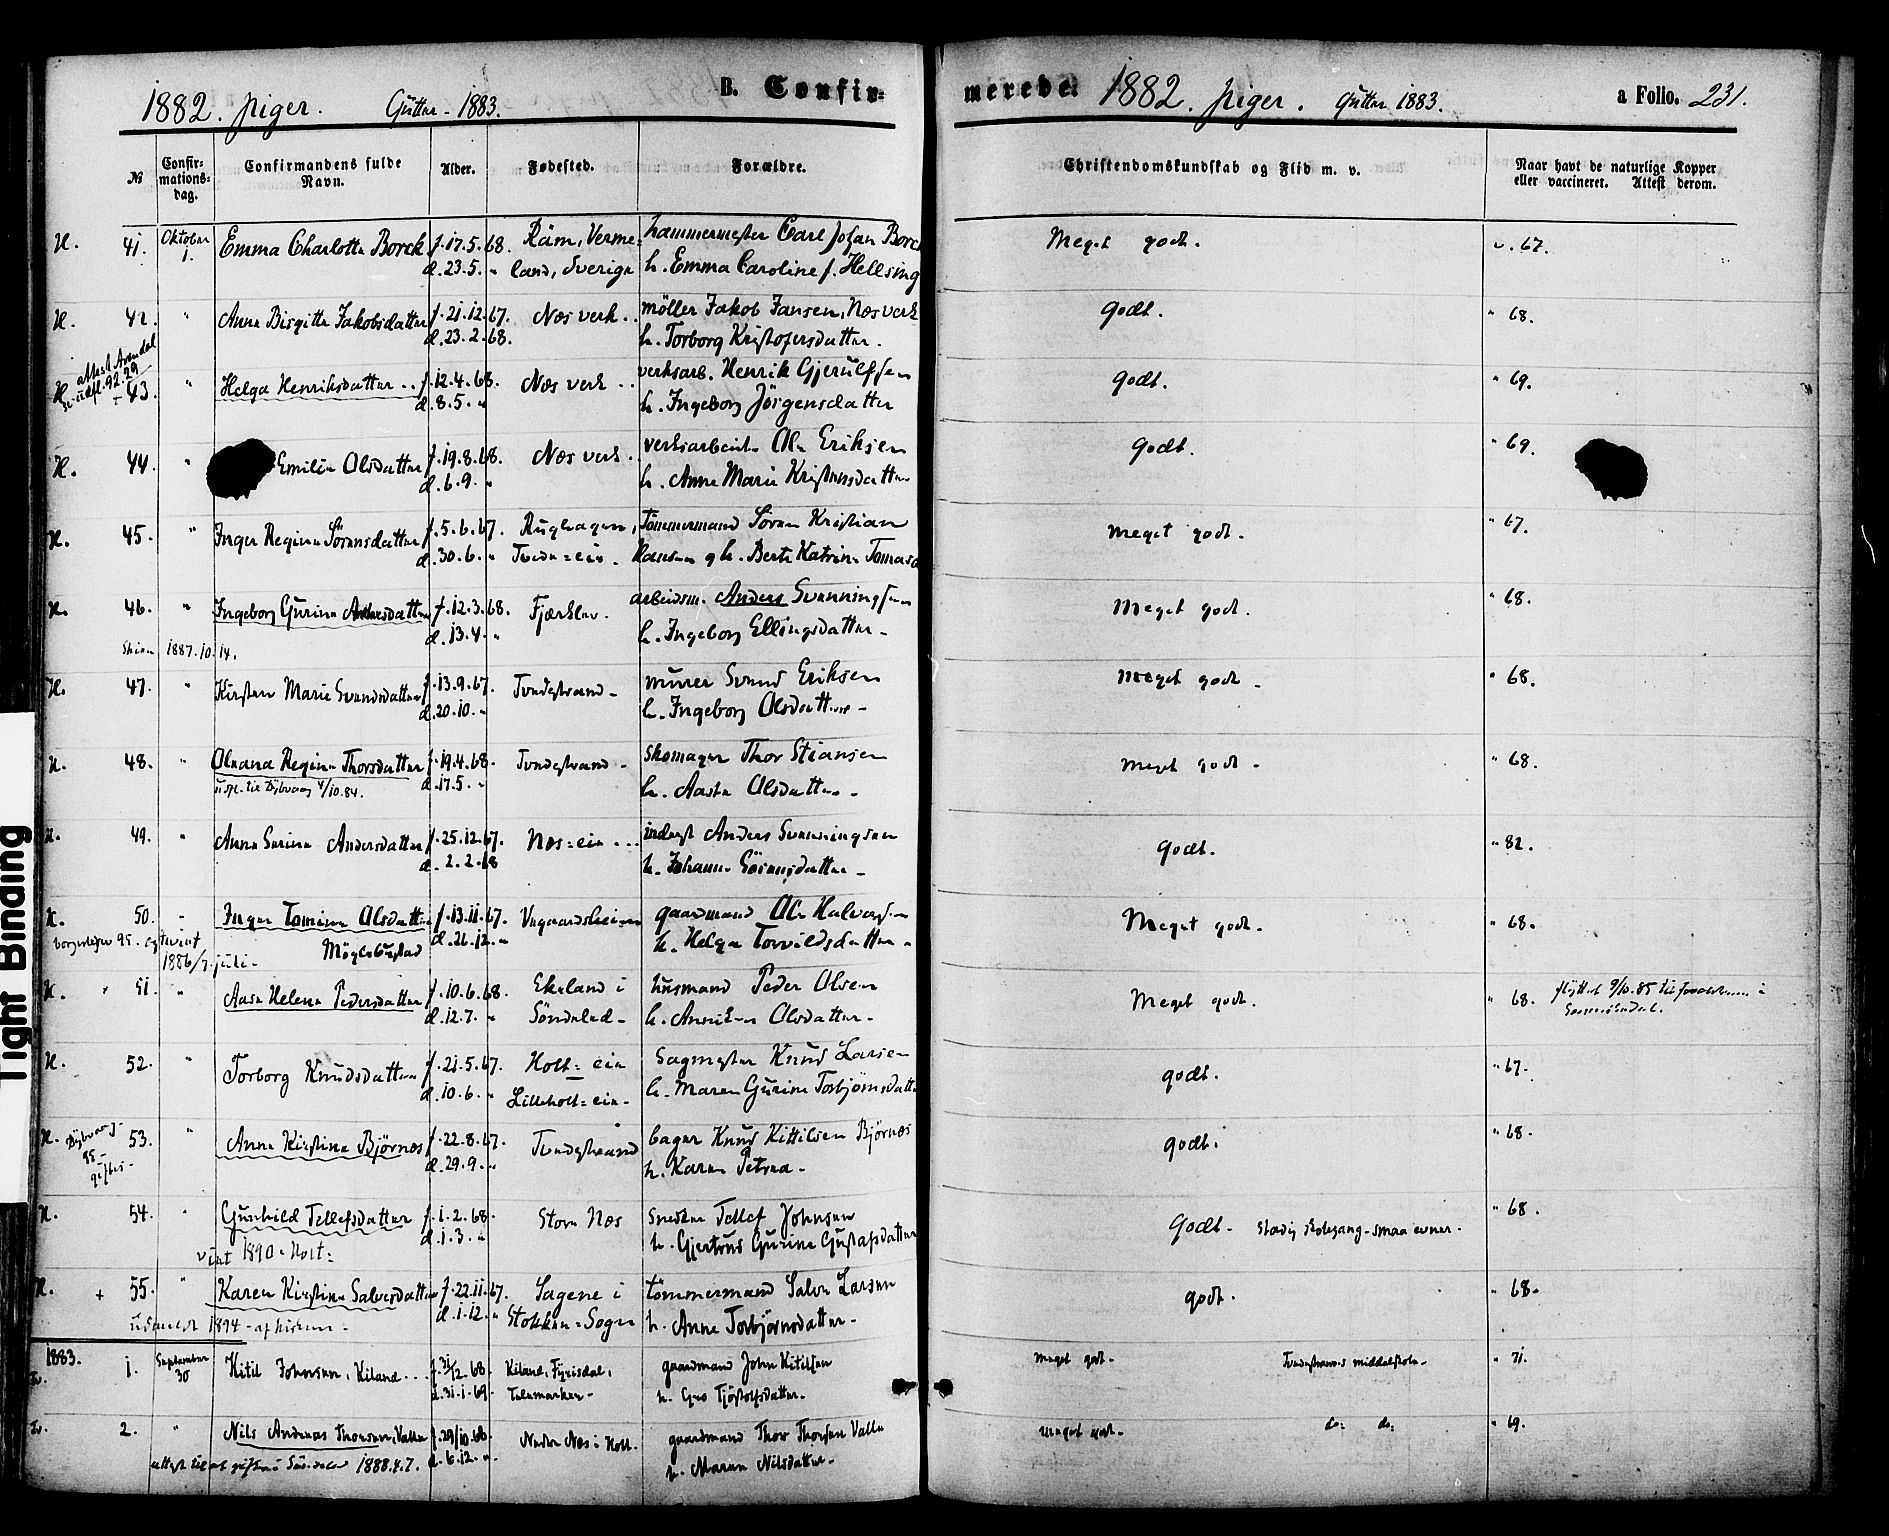 1882. piger. Gutter - 1883.
B. Confir-
№
Confir-
mations-
dag.
Confirmandens fulde
Navn.
Alder.
Fødested.
Forældre.
H. 41. Oktober 1. Emma Charlotte Borck f. 17.5.68. Räm, Verme- hammermester Carl Johan Borck
d. 23.5. " land, Sverige h. Emma Caroline f. Hellsing
H. 42. " Anne Birgitte Jakobsdatter f. 21.12.67. Næs verk .. möller Jakob Jansen, Næs verk
d. 23.2.68. h. Torborg Kristofersdatter.
attest Arendal
udfl. 92. 29
H. 43. " Helga Henriksdatter .. f. 12.4.68. Næs verk .. verksarb. Henrik Gjerulfsen
d. 8.5. " h. Ingeborg Jörgensdatter
H. 44. " Emilie Olsdatter f. 19.8.68. Næs verk . verksarbeider Ole Eriksen
d. 6.9. " h. Anne Marie Kristensdatter
H. 45. " Inger Regine Sörensdatter f. 5.6.67. Rughagen, Tömmermand Sören Kristian
d. 30.6. " Tvede=eie. Hansen og h. Berte Katrine Tomasd
H. 46. " Ingeborg Gurine Andersdatter f. 12.3.68. Fjærklev. arbeidsm. Anders Svenningsen
Skien 1887.10.14. d. 13.4. " h. Ingeborg Ellingsdatter -
H. 47. " Kirsten Marie Svendsdatter f. 13.9.67. Tvedestrand - murer Svend Eriksen
d. 20.10. " h. Ingeborg Olsdatter -
H. 48. " Oleana Regine Thorsdatter f. 19.4.68. Tvedestrand - Skomager Thor Stiansen
til Dybvaag 4/10.84. d. 17.5. " h. Aaste Olsdatter -
H. 49. " Anne Serine Andersdatter f. 25.12.67. Næs=eie ... inderst Anders Svenningsen
d. 2.2.68 h. Johanne Sörensdatter -
H. 50. " Inger Tomine Olsdatter f. 13.11.67. Vegaardsheien gaardmand Ole Halvorsen
Möglebustad d. 26.12. " h. Helge Torvildsdatter -
1886/7. juli -
H. 51. " Aase Helene Pedersdatter f. 10.6.68. Ekeland i husmand Peder Olsen
d. 12.7. " Söndeled - h. Anniken Olsdatter -
H. 52. " Torborg Knudsdatter f. 21.5.67. Holt= eie Sagmester Knud Larsen
d. 10.6. " Lilleholt= eie - h. Maren Gurine Torbjörnsdatter
H. Dybvaag - 53. " Anne Kirstine Björnæs f. 22.8.67. Tvedestrand bager Knud Kittilsen Björnæs
95 - giftes - d. 29.9. " h. Karen Petrea -
H. 54. " Gunhild Tellefsdatter f. 1.2.68. Store Næs Snedker Tellef Johnsen
viet 1890 - Holt= d. 1.3. " h. Gjertrud Gurine Gustafsdatter
H. + 55. " Karen Kirstine Salvesdatter f. 22.11.67. Sagene i tömmermand Salve Larsen
udmeldt 1894 - af kirken - d. 1.12. " Stokken=Sogn h. Anne Torbjörnsdatter -
1883.
Tv. 1. September 30 Kitil Johnsen, Kiland ... f. 31/12.68. Kiland, Fyrisdal, gaardmand John Kitilsen
d. 31.1.69. Telemarken - h. Gro Tjöstolfsdatter.
Tv. 2. " Nils Andreas Thorsen, Valle f. 29/10.68. Nedre Næs i Holt. gaardmand Thor Thorsen Valle
attest til at giftes i 1888.4.7. d. 6.12. " h. Maren Nilsdatter -
merede. 1882. piger. Gutter 1883. a Folio. 231.
Christendomskundskab og Flid m. v.
Naar havt de naturlige Kopper
eller vaccineret. Attest derom.
Meget godt. v. 67.
Godt. " 68.
Godt. " 69.
Godt. " 69.
Meget godt. " 67.
Meget godt. " 68.
Meget godt - " 68.
Meget godt - " 68.
Godt. " 82.
Meget godt. " 68.
Meget godt. " 68. flyttet 9/10.85 til i
godt. " 67.
godt. " 68.
Godt - Stadig skolegang - smaa evner. " 68.
godt. " 68.
Meget godt - Tvedestrands middelskole - " 71.
Meget godt - do: do: " 69.
Tight Binding